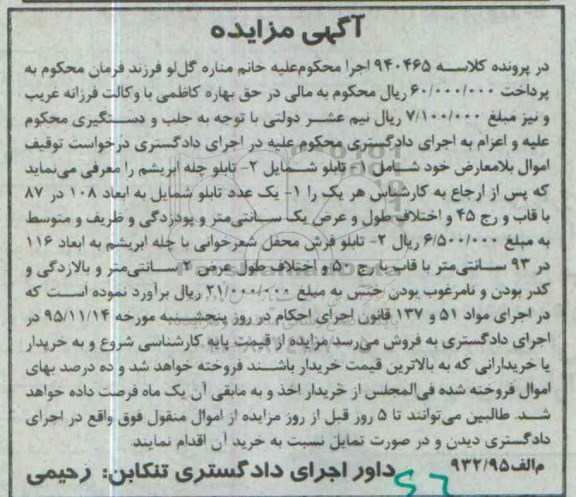 آگهی مزایده
در پرونده کلاسه ۹۴۰۴۶۵ اجرا محکوم‌علیه خانم مناره گل‌لو فرزند فرمان محکوم به
پرداخت ۶۰/۰۰۰/۰۰۰ ریال محکوم به مالی در حق بهاره کاظمی با وکالت فرزانه غریب
و نیز مبلغ ۷/۱۰۰/۰۰۰ ریال نیم عشر دولتی با توجه به جلب و دستگیری محکوم
علیه و اعزام به اجرای دادگستری محکوم علیه در اجرای دادگستری درخواست توقیف
اموال بلامعارض خود شامل ۱- تابلو شمایل ۲- تابلو چله ابریشم را معرفی می‌نماید
که پس از ارجاع به کارشناس هر یک را ۱- یک عدد تابلو شمایل به ابعاد ۱۰۸ در ۸۷
با قاب و رج ۴۵ و اختلاف طول و عرض یک سانتی‌متر و پودزدگی و ظریف و متوسط
به مبلغ ۶/۵۰۰/۰۰۰ ریال ۲- تابلو فرش محفل شعرخوانی با چله ابریشم به ابعاد ۱۱۶
در ۹۳ سانتی‌متر با قاب با رج ۵۰ و اختلاف طول عرض ۲ سانتی‌متر و بالازدگی و
کدر بودن و نامرغوب بودن جنس به مبلغ ۲۱/۰۰۰/۰۰۰ ریال برآورد نموده است که
در اجرای مواد ۵۱ و ۱۳۷ قانون اجرای احکام در روز پنجشنبه مورخه ۹۵/۱۱/۱۴ در
اجرای دادگستری به فروش می‌رسد مزایده از قیمت پایه کارشناسی شروع و به خریدار
یا خریدارانی که به بالاترین قیمت خریدار باشند فروخته خواهد شد و ده درصد بهای
اموال فروخته شده فی‌المجلس از خریدار اخذ و به مابقی آن یک ماه فرصت داده خواهد
شد. طالبین می‌توانند تا ۵ روز قبل از روز مزایده از اموال منقول فوق واقع در اجرای
دادگستری دیدن و در صورت تمایل نسبت به خرید آن اقدام نمایند.
م‌الف۹۳۲/۹۵ داور اجرای دادگستری تنکابن: رحیمی